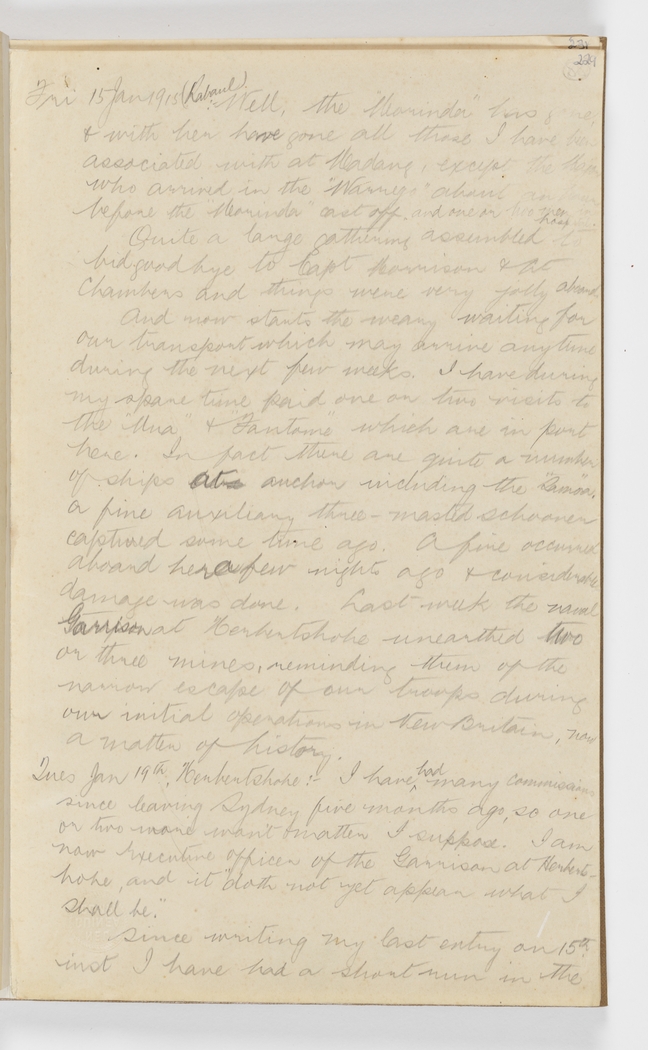 224
Fri 15 Jan 1915 (Rabaul). Well, the "Morinda" has gone,
& with her have gone all those I have been
associated with at Madang, except the
who arrived in the "Warrego" about an hour
before the "Morinda" cast off, and one or two men
Quite a large gathering assembled to
bid goodbye to Capt Morrison & Lt
Chambers and things were very jolly aboard
And now starts the weary waiting for
our transport which may arrive anytime
during the next few weeks. I have during
my spare time paid one or two visits to
the "Una" & "Fantome" which are in port
here. In fact there are quite a number
of ships at anchor including the "Samoa",
a fine auxiliary three-masted schooner
captured some time ago. A fire occurred
aboard her a few nights ago & considerable
damage was done. Last week the naval
Garrison at Herbertshohe unearthed two
or three mines, reminding them of the
narrow escape of our troops during
our initial operations in New Britain, now
a matter of history.
Tues Jan 19th, Herbertshohe:- I have had many commissions
since leaving Sydney five months ago, so one
or two more wont matter I suppose. I am
now Executive officer of the Garrison at Herbert-
hohe, and it "doth not yet appear what I
shall be."
Since writing my last entry on 15th
inst I have had a short run in the